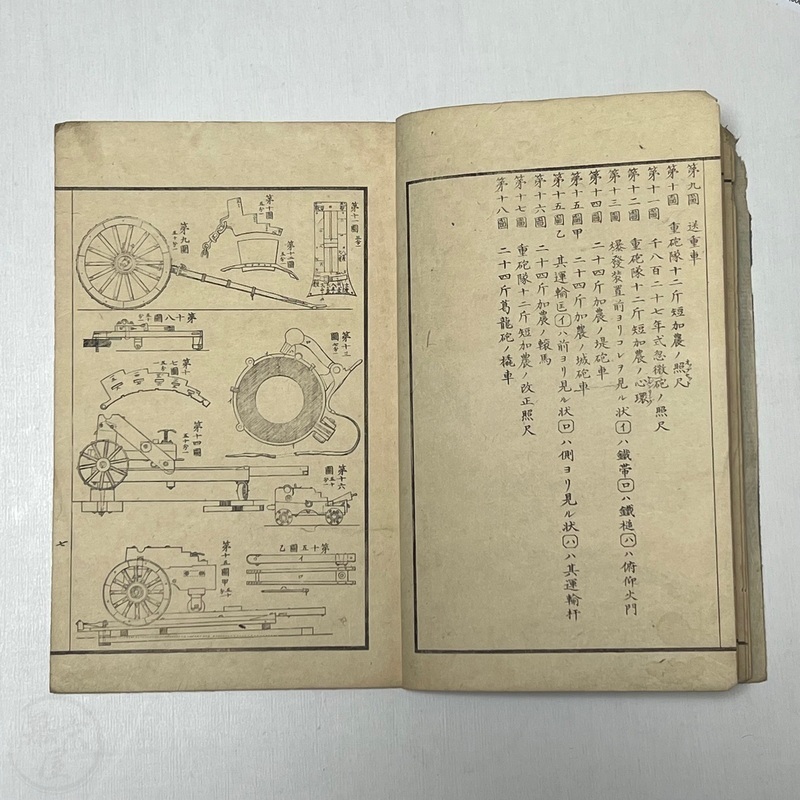 第九圖 送重車
第十圖 重砲隊十二斤短加農ノ照尺
第十一圖 千八百二十七年式忽微砲ノ照尺
第十二圖 重砲隊十二斤短加農ノ心環
第十三圖 爆發装置前ヨリコレヲ見ル状イハ鐵帯ロハ鐵槌ハハ俯仰火門
第十四圖 二十四斤加農ノ堤砲車
第十五圖甲 二十四斤加農ノ城砲車
第十五圖乙 其運輸匡イハ前ヨリ見ル状ロハ側ヨリ見ル状ハハ其運輸杆
第十六圖 二十四斤加農ノ轅馬
第十七圖 重砲隊十二斤短加農ノ改正照尺
第十八圖 二十四斤葛龍砲ノ橇車
第十一圖
第十圖
第十二圖
第九圖
第十八圖
第十三圖
第十七圖
第十四圖
第十六圖
第十五圖乙
第十五圖甲